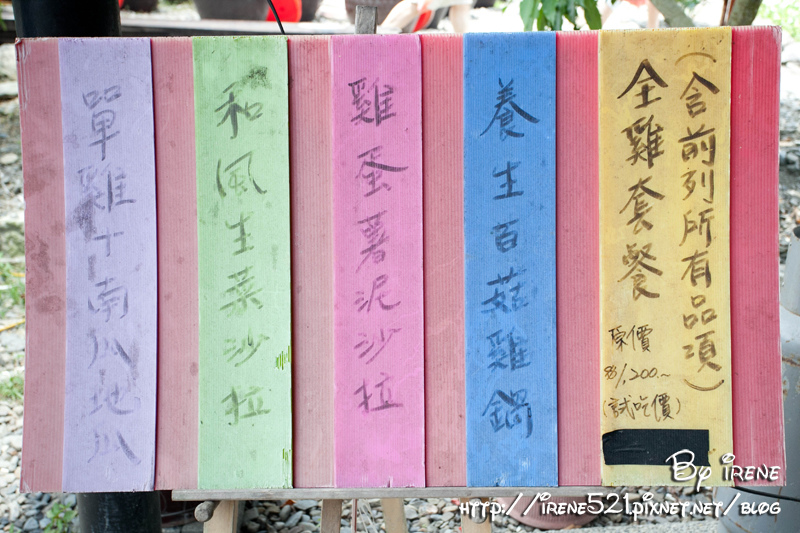 (含前列所有品項)
全雞套餐
原價
$1,200.~
(試吃價)
養生百菇雞鍋
雞蛋薯泥沙拉
和風生菜沙拉
單雞+南瓜地瓜
By Irene
http://irene521.pixnet.net/blog